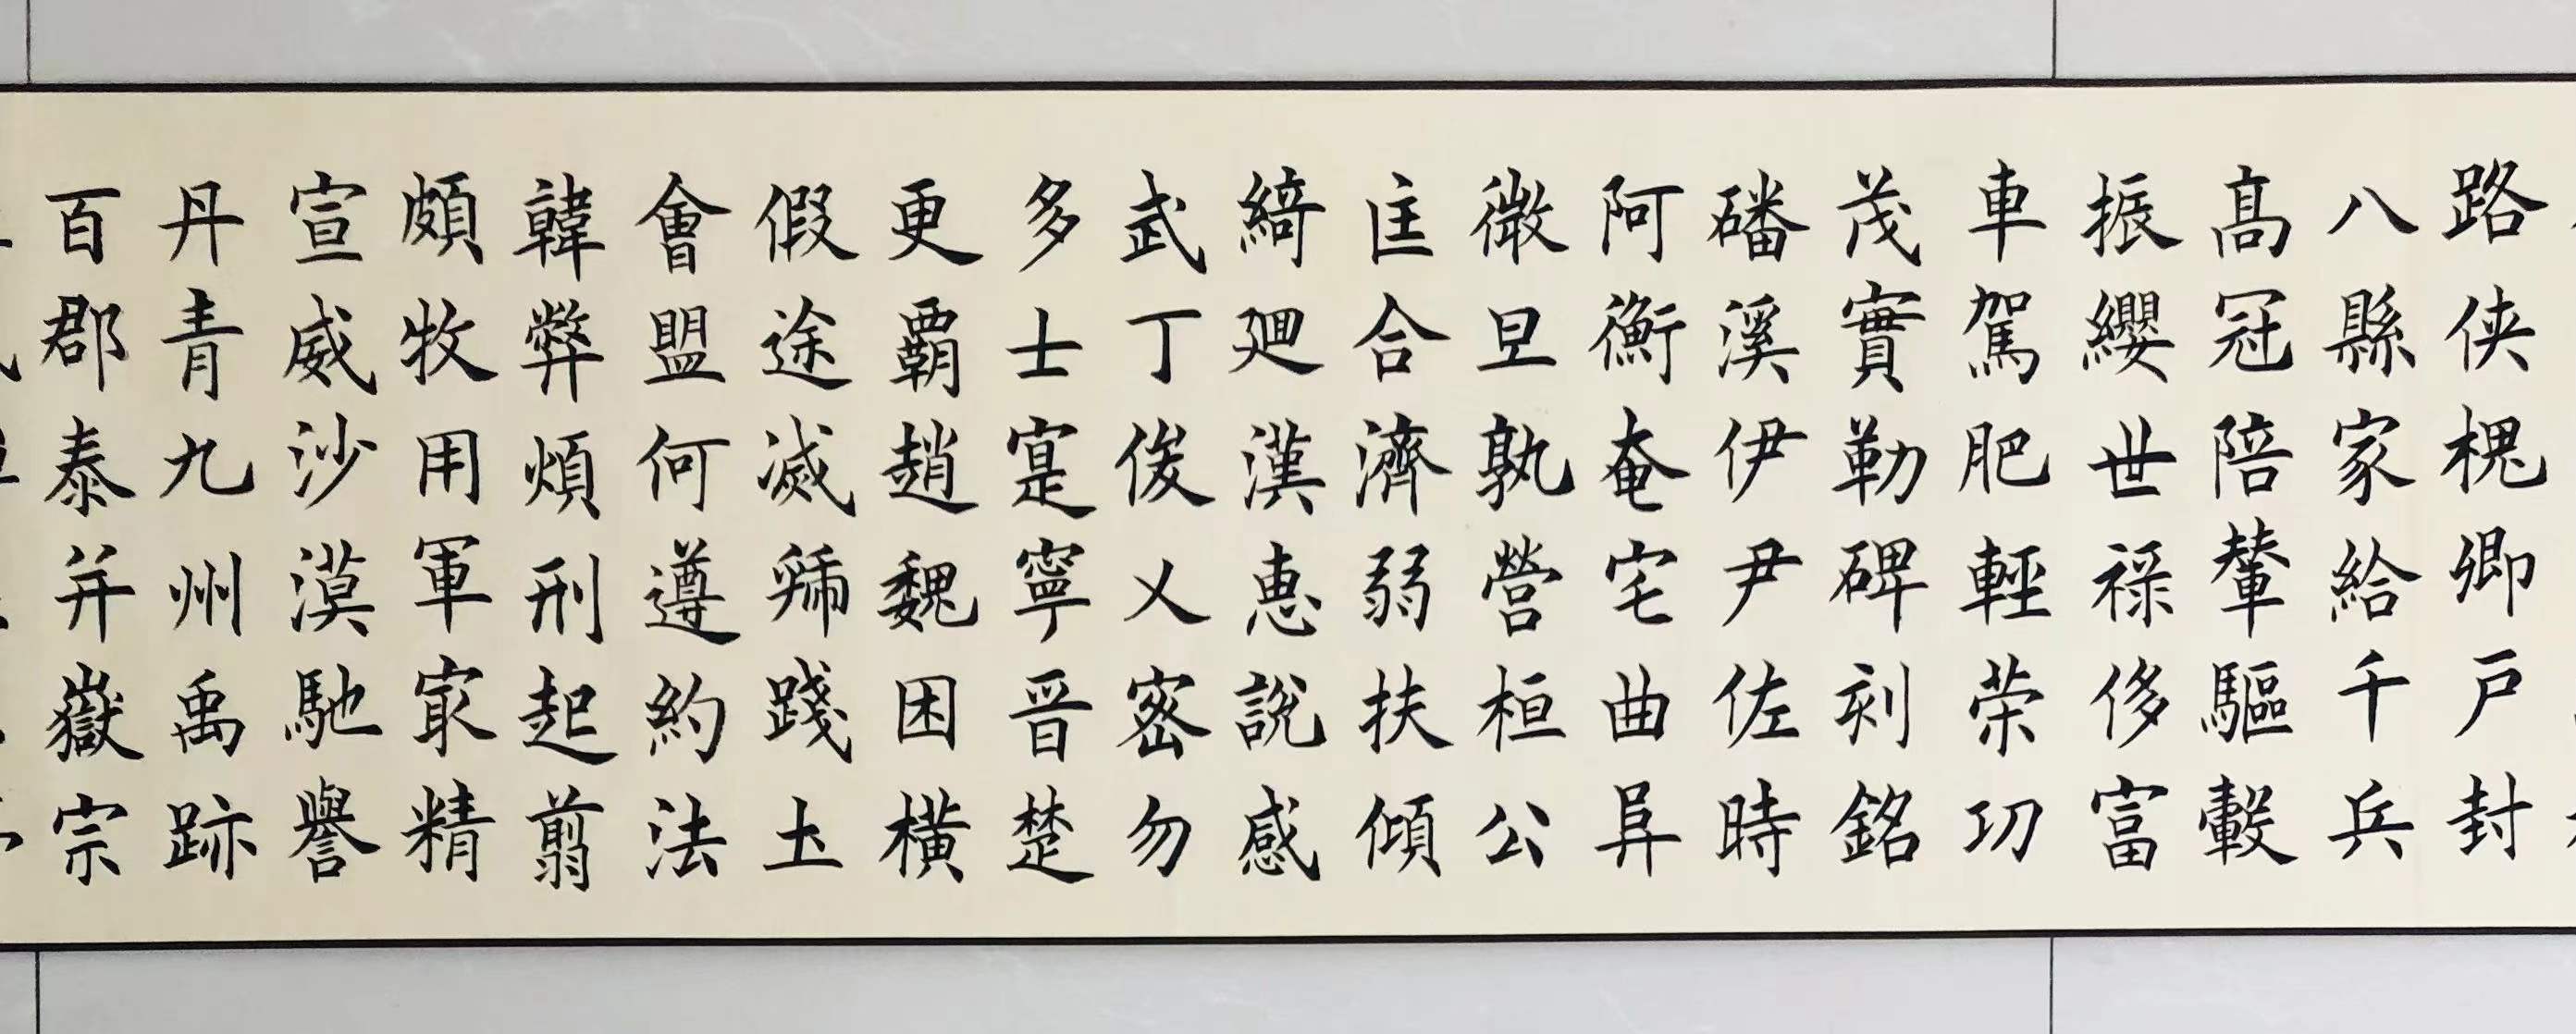 路侠槐卿户封
八縣家給千兵
髙冠陪輦驅轂
振纓世禄侈富
車駕肥輕荣功
茂實勒碑刻銘
磻溪伊尹佐時
阿衡奄宅曲阜
微旦孰營桓公
匡合濟弱扶傾
綺迴漢惠説感
武丁俊乂密勿
多士寔寧晋楚
更覇趙魏困横
假途滅虢踐土
會盟何遵約法
韓弊煩刑起翦
頗牧用軍最精
宣威沙漠馳譽
丹青九州禹跡
百郡泰并嶽宗